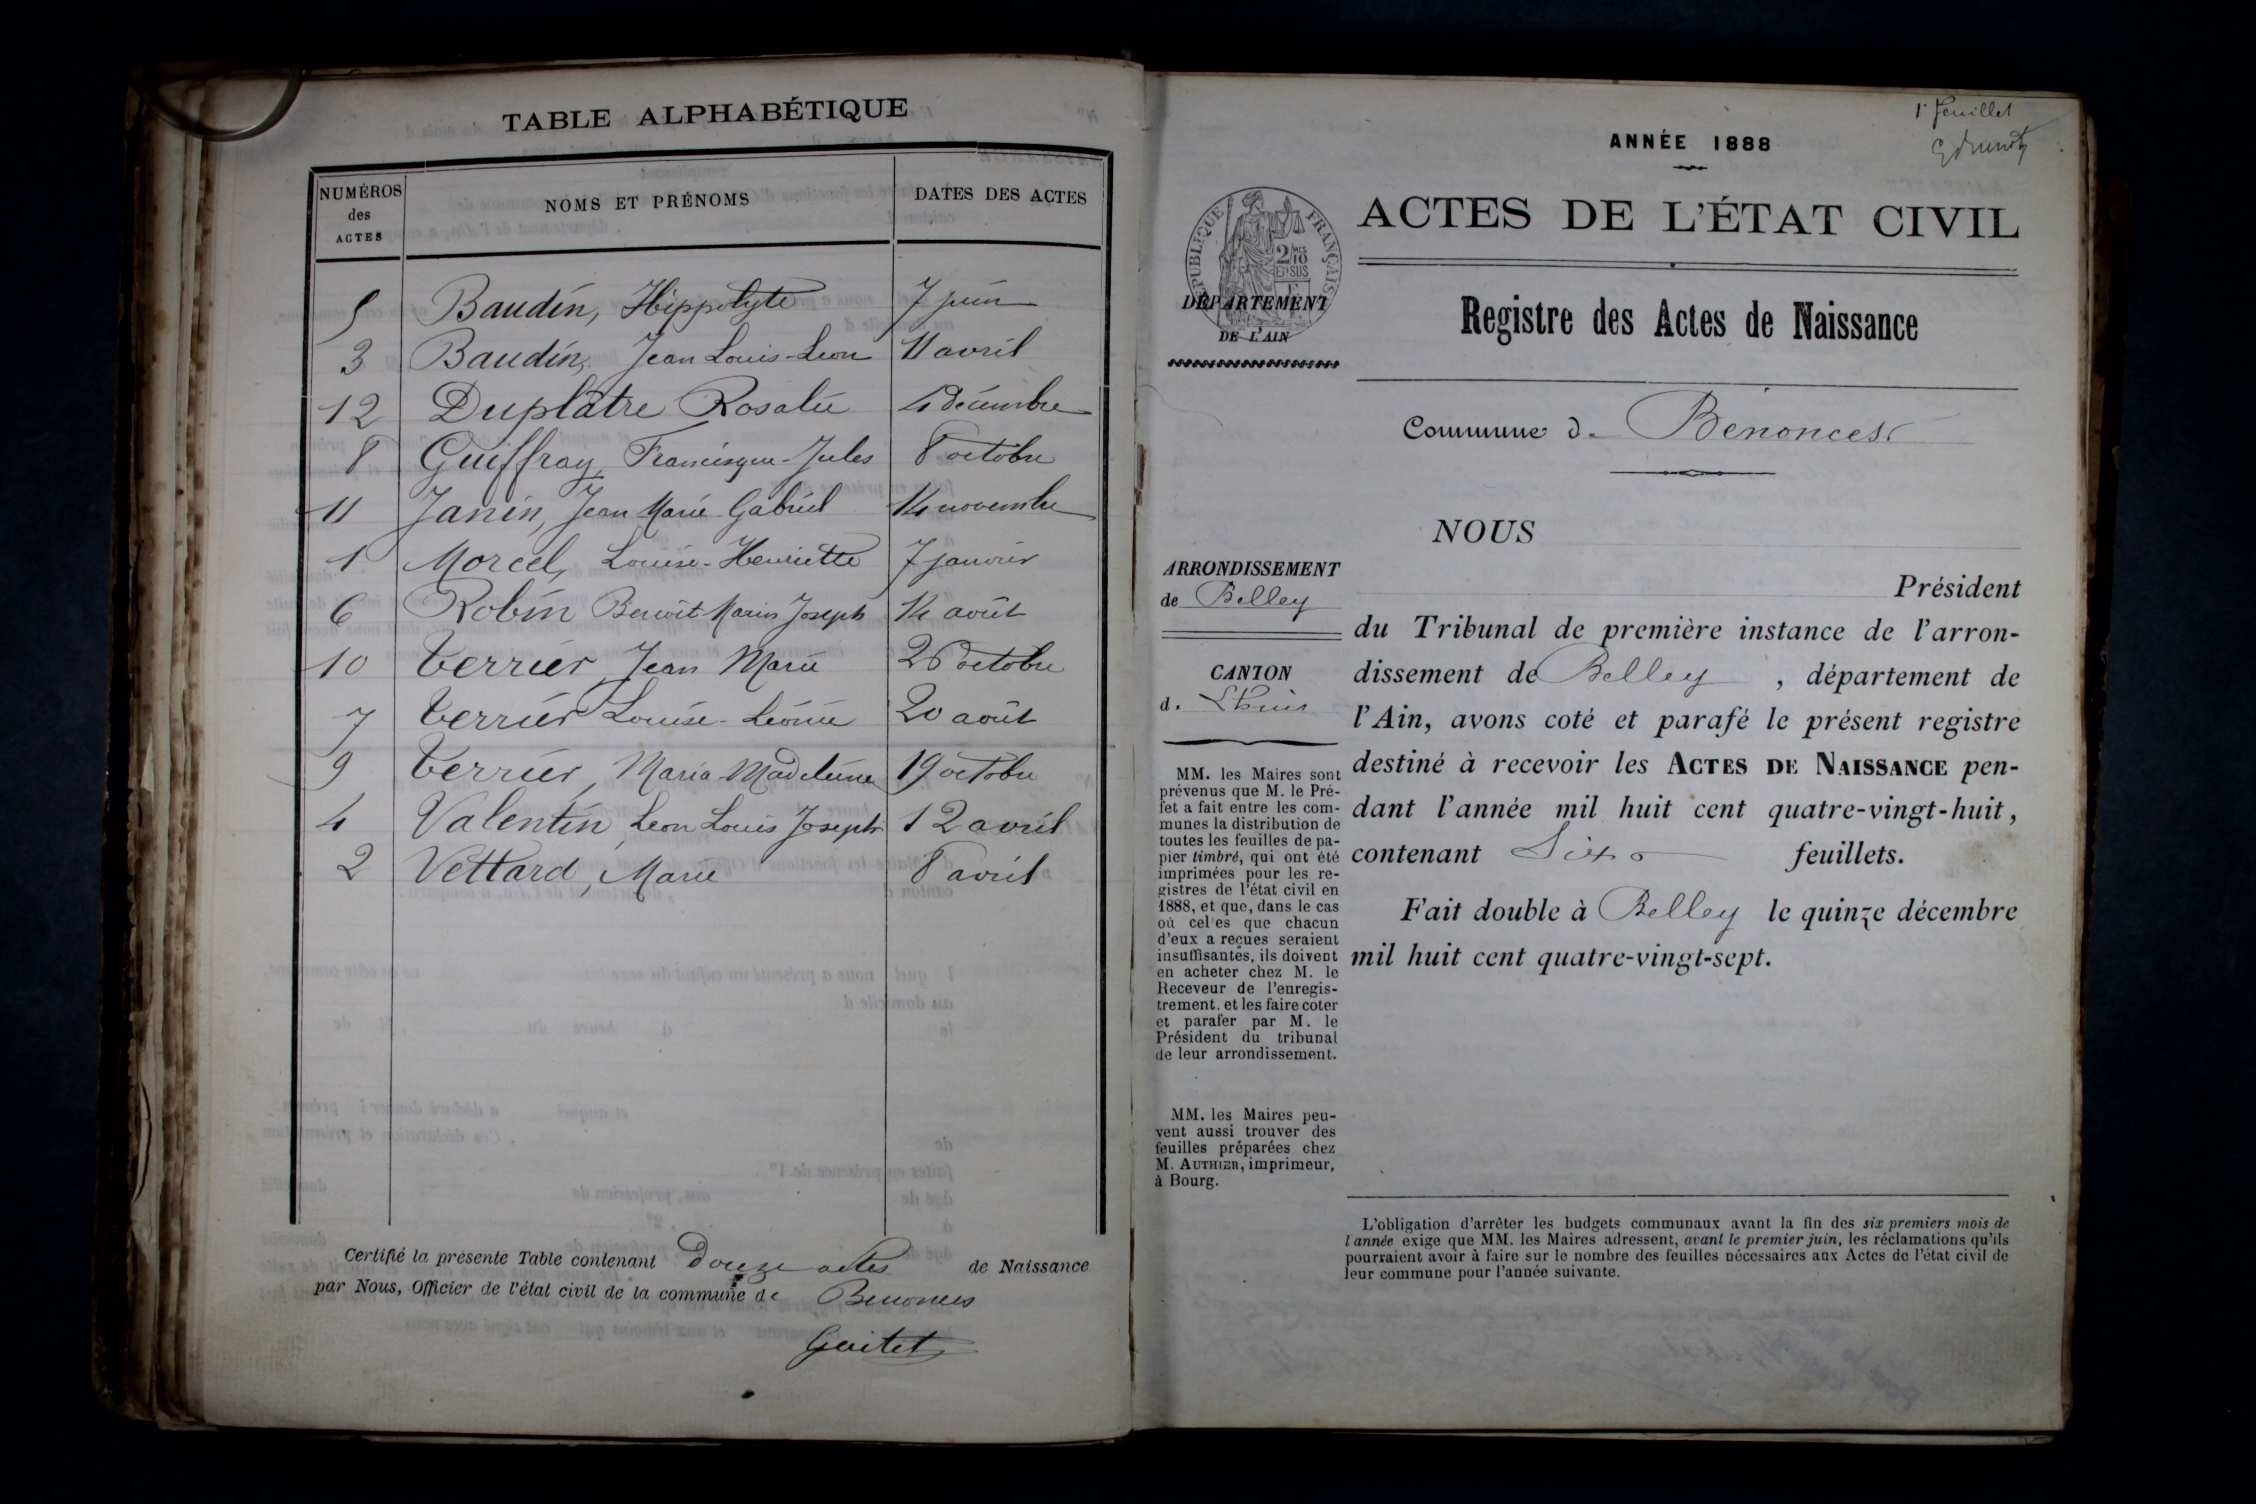 TABLE ALPHABÉTIQUE
NUMÉROS des ACTES
NOMS ET PRÉNOMS
DATES DES ACTES
5 Baudin, Hippolyte 7 juin
3 Baudin, Jean Louis-Leon 11 avril
12 Duplâtre Rosalie 4 décembre
8 Guiffray, Francisque-Jules 8 octobre
11 Janin, Jean Marie Gabriel 14 novembre
1 Morcel, Louise-Henriette 7 janvier
6 Robin Benoit Marius Joseph 14 août
10 Terrier Jean Marie 26 octobre
7 Terrier Louise-Léonie 20 août
9 Terrier, Maria Madeleine 19 octobre
4 Valentin, Leon Louis Joseph 12 avril
2 Vettard, Marie 8 avril
Certifié la présente Table contenant Douze actes de Naissance
par Nous, Officier de l'état civil de la commune de Benonces
Guitet
1r feuillet
ANNÉE 1888
ACTES DE L'ÉTAT CIVIL
RÉPUBLIQUE FRANÇAISE
2/10
EN SUS
DÉPARTEMENT
DE L'AIN
Registre des Actes de Naissance
Commune d. Bénonces
NOUS
ARRONDISSEMENT
de Belley
CANTON
d. Lhuis
Président
du Tribunal de première instance de l'arron-
dissement de Belley, département de
l'Ain, avons coté et parafé le présent registre
destiné à recevoir les ACTES DE NAISSANCE pen-
dant l'année mil huit cent quatre-vingt-huit,
contenant Six feuillets.
Fait double à Belley le quinze décembre
mil huit cent quatre-vingt-sept.
MM. les Maires sont
prévenus que M. le Pré-
fet a fait entre les com-
munes la distribution de
toutes les feuilles de pa-
pier timbré, qui ont été
imprimées pour les re-
gistres de l'état civil en
1888, et que, dans le cas
où cel es que chacun
d'eux a reçues seraient
insuffisantes, ils doivent
en acheter chez M. le
Receveur de l'enregis-
trement, et les faire coter
et parafer par M. le
Président du tribunal
de leur arrondissement.
MM. les Maires peu-
vent aussi trouver des
feuilles préparées chez
M. AUTHIER, imprimeur,
à Bourg.
L'obligation d'arrêter les budgets communaux avant la fin des six premiers mois de
l'année exige que MM. les Maires adressent, avant le premier juin, les réclamations qu'ils
pourraient avoir à faire sur le nombre des feuilles nécessaires aux Actes de l'état civil de
leur commune pour l'année suivante.